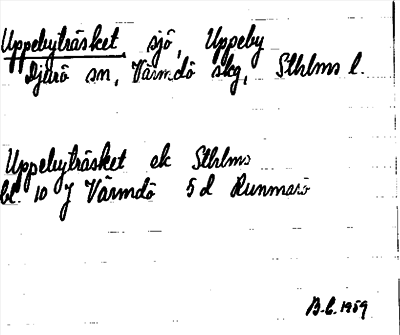 Uppebyträsket, sjö, Uppeby
Djurö sn, Värmdö skg, Sthlms l.
Uppebyträsket ek Sthlms
bl. 10 J Värmdö 5 d Runmarö
B.C. 1959